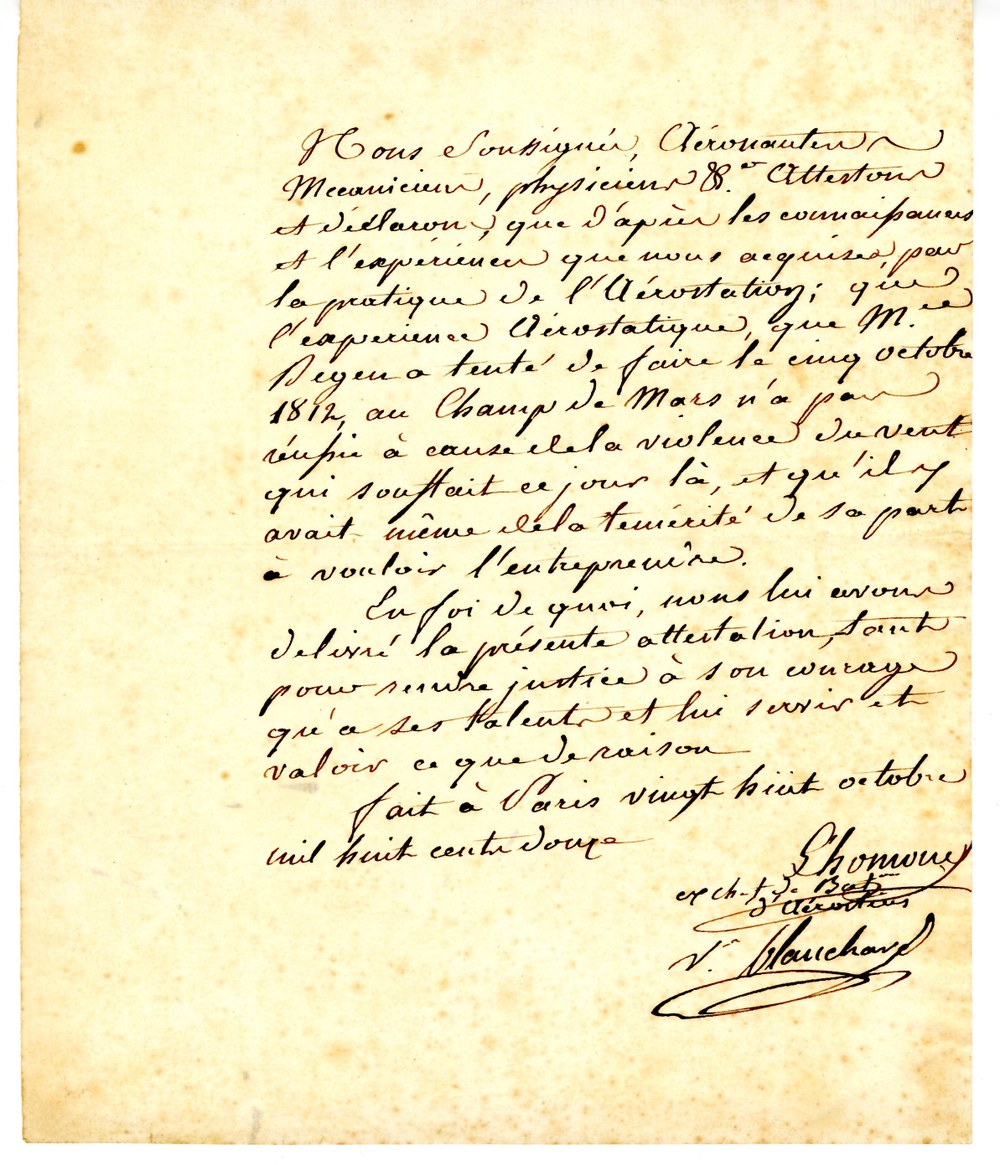 Nous Soussignés, Aéronautes
Mécaniciens, physiciens &.a Attestons
et déclarons, que d'après les connaissances
et l'expérience que nous acquises, par
la pratique de l'Aérostation; que
l'experience Aérostatique, que M.
Degen a tenté de faire le cinq octobre
1812, au Champ de Mars n'a pas
réussie à cause de la violence du vent
qui soufflait ce jour là, et qu'il y
avait même de la temérité de sa part
à vouloir l'entreprendre.
En foi de quoi, nous lui avons
delivré la présente attestation, tant
pour rendre justice à son courage
qu'a ses talents et lui servir et
valoir ce que de raison
fait à Paris vingt huit octobre
mil huit cents douze
Lhomond
ex ch.f de Bat.on
d'Aérostiers
v.e Blanchard